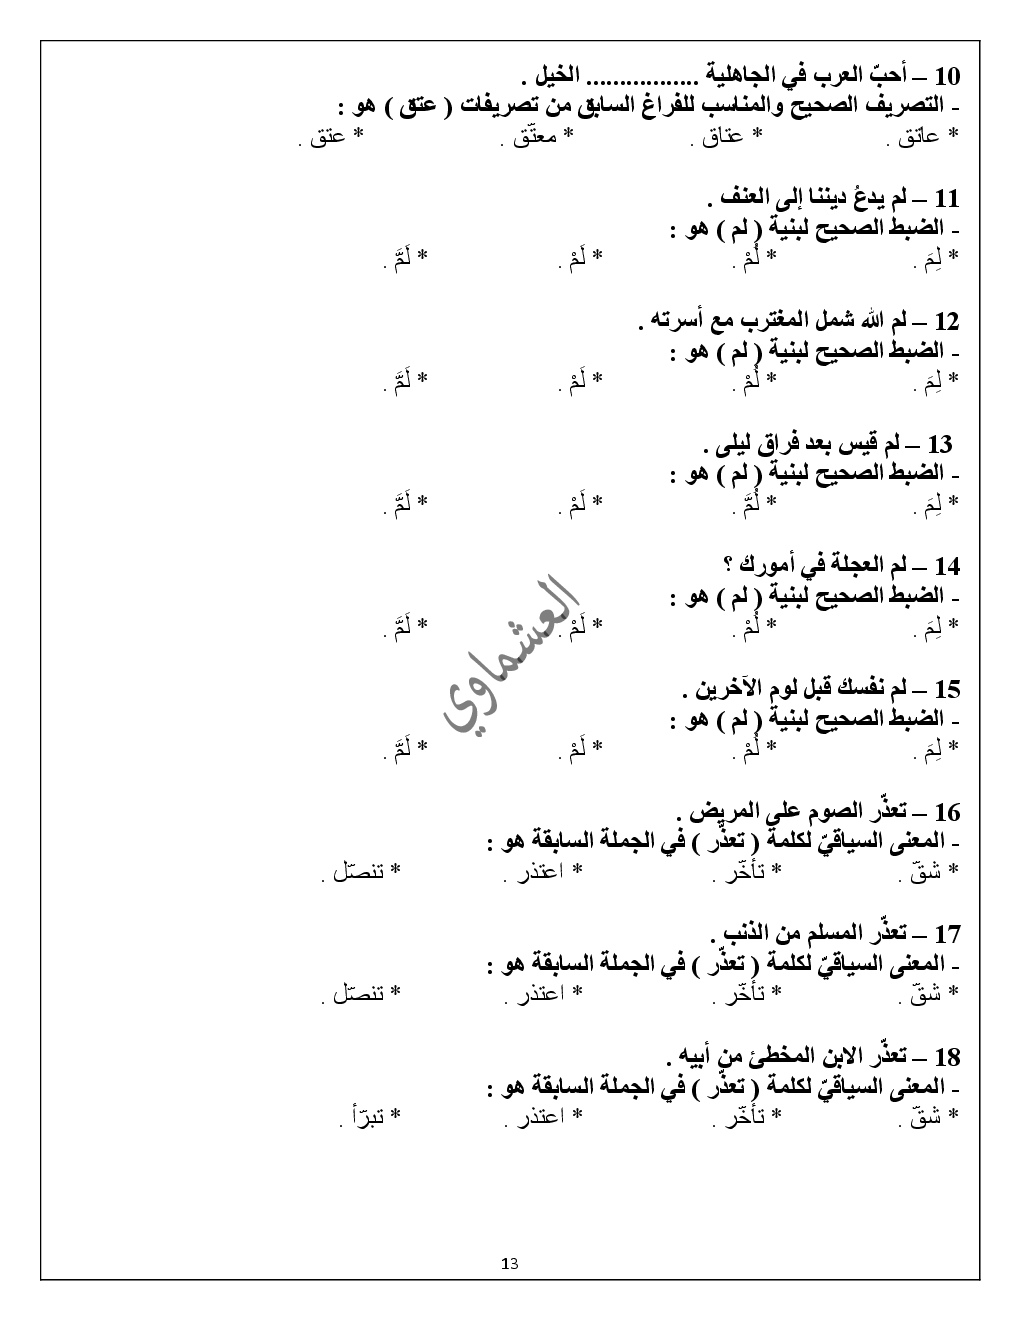 10 – أحبّ العرب في الجاهلية ................. الخيل .
- التصريف الصحيح والمناسب للفراغ السابق من تصريفات ( عتق ) هو :
* عاتق . * عتاق . * معتّق . * عتق .
11 – لم يدعُ ديننا إلى العنف .
- الضبط الصحيح لبنية ( لم ) هو :
* لِمَ . * لُمْ . * لَمْ . * لَمَّ .
12 – لم الله شمل المغترب مع أسرته .
- الضبط الصحيح لبنية ( لم ) هو :
* لِمَ . * لُمْ . * لَمْ . * لَمَّ .
13 – لم قيس بعد فراق ليلى .
- الضبط الصحيح لبنية ( لم ) هو :
* لِمَ . * لُمَّ . * لَمْ . * لَمَّ .
14 – لم العجلة في أمورك ؟
- الضبط الصحيح لبنية ( لم ) هو :
* لِمَ . * لُمْ . * لَمْ . * لَمَّ .
العشماوي
15 – لم نفسك قبل لوم الآخرين .
- الضبط الصحيح لبنية ( لم ) هو :
* لِمَ . * لُمْ . * لَمْ . * لَمَّ .
16 – تعذّر الصوم على المريض .
- المعنى السياقيّ لكلمة ( تعذّر ) في الجملة السابقة هو :
* شقّ . * تأخّر . * اعتذر . * تنصّل .
17 – تعذّر المسلم من الذنب .
- المعنى السياقيّ لكلمة ( تعذّر ) في الجملة السابقة هو :
* شقّ . * تأخّر . * اعتذر . * تنصّل .
18 – تعذّر الابن المخطئ من أبيه .
- المعنى السياقيّ لكلمة ( تعذّر ) في الجملة السابقة هو :
* شقّ . * تأخّر . * اعتذر . * تبرّأ .
13